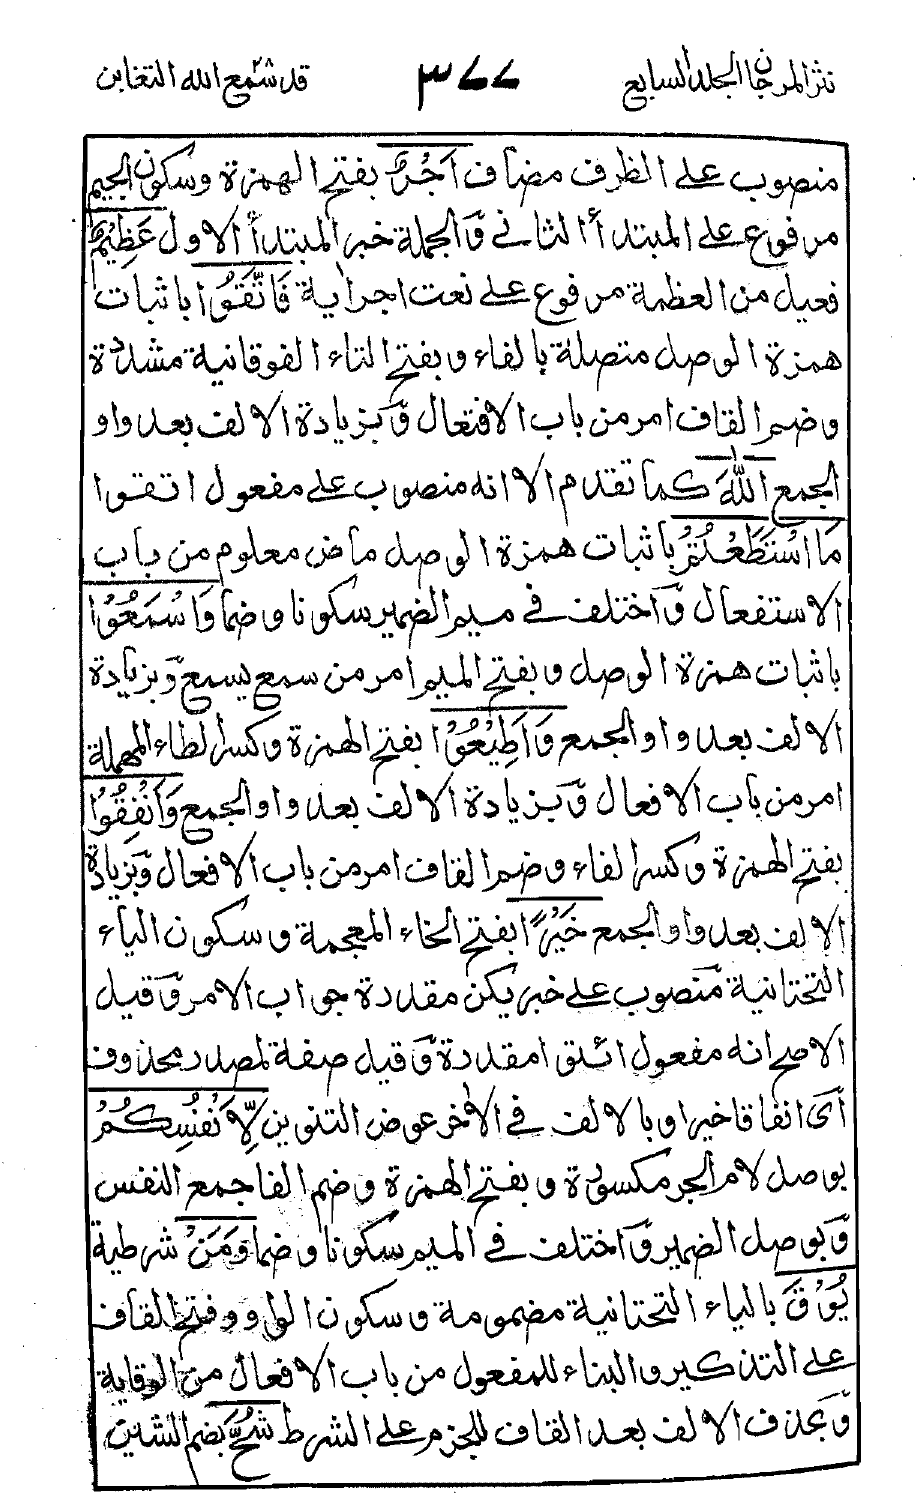 نثر المرجان الجلد السابع ٣٧٧ قد سمع الله ٢٨ التغابن
منصوب على الظرف مضاف اَجْرٌ بفتح الهمزة وسكون الجيم
مرفوع على المبتدأ الثاني وَالجملة خبر المبتدأ الاول عَظِيْمٌ
فعيل من العظمة مرفوع على نعت اجراية فَاتَّقُوا باثبات
همزة الوصل متصلة بالفاء وبفتح التاء الفوقانية مشددة
وضم القاف امر من باب الافتعال وَبزيادة الالف بعد واو
الجمع اللّٰهَ كما تقدم الا انه منصوب على مفعول اتقوا
مَا اسْتَطَعْتُمْ باثبات همزة الوصل ماض معلوم من باب
الاستفعال وَاختلف في ميم الضمير سكونا وضما وَاسْمَعُوْا
باثبات همزة الوصل وبفتح الميم امر من سمع يسمع وَبزيادة
الالف بعد واو الجمع وَاَطِيْعُوْا بفتح الهمزة وكسر الطاء المهملة
امر من باب الافعال وَبزيادة الالف بعد واو الجمع وَاَنْفِقُوْا
بفتح الهمزة وكسر الفاء وضم القاف امر من باب الافعال وَبزيادة
الالف بعد واو الجمع خَيْرًا بفتح الخاء المعجمة وسكون الياء
التحتانية منصوب على خبر يكن مقددة جواب الامر وَقيل
الاصح انه مفعول ائتوا مقددة وَقيل صفة لمصدر محذوف
اَى انفاقا خيرا وبالالف في الاٰخر عوض التنوين لِّاَنْفُسِكُمْ
بوصل لام الجر مكسورة وبفتح الهمزة وضم الفا جمع النفس
وَبوصل الضمير وَاختلف في الميم سكونا وضما وَمَنْ شرطية
يُوْقَ بالياء التحتانية مضمومة وسكون الواو وفتح القاف
على التذكير والبناء للمفعول من باب الافعال من الوقاية
وَبحذف الالف بعد القاف للجزم على الشرط شُحَّ بضم الشين